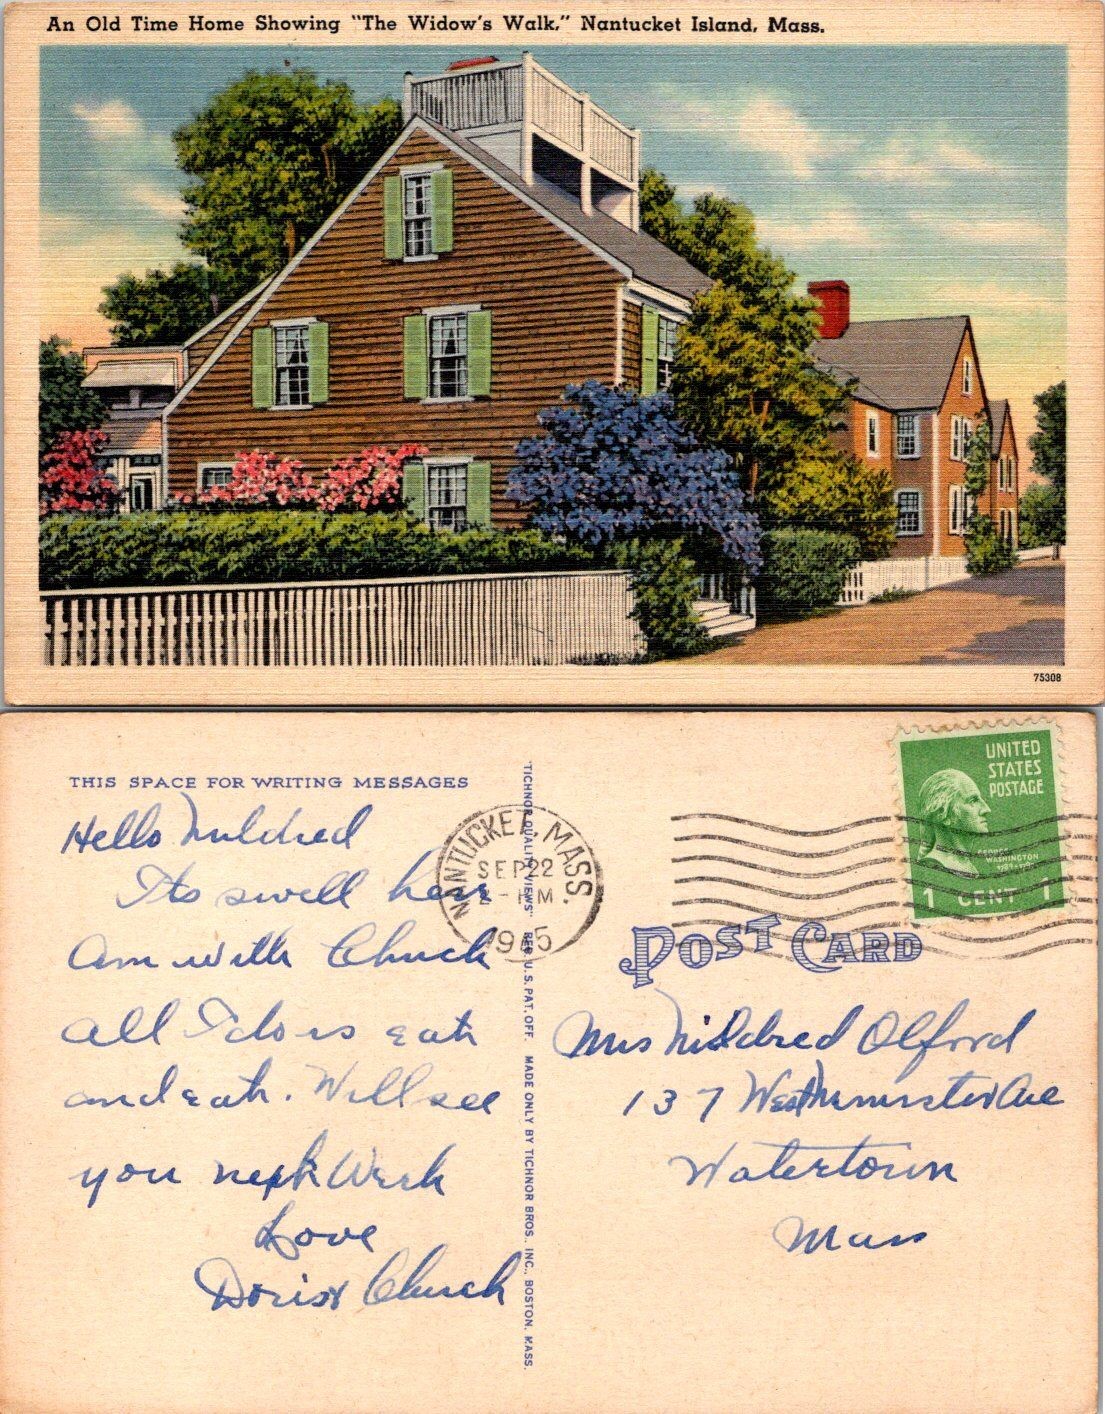 An Old Time Home Showing "The Widow's Walk," Nantucket Island, Mass.
75308
THIS SPACE FOR WRITING MESSAGES
Hello Mildred
Its swell here
Am with Chuck
All I do is eat
and eat. Will see
you next Week
Love
Doris & Chuck
"TICHNOR QUALITY VIEWS" REG. U.S. PAT. OFF. MADE ONLY BY TICHNOR BROS., INC., BOSTON, MASS.
NANTUCKET, MASS.
SEP 22
PM
UNITED
STATES
POSTAGE
GEORGE
WASHINGTON
1 CENT 1
POST CARD
Mrs Mildred Olford
137 Westminster Ave
Watertown
Mass